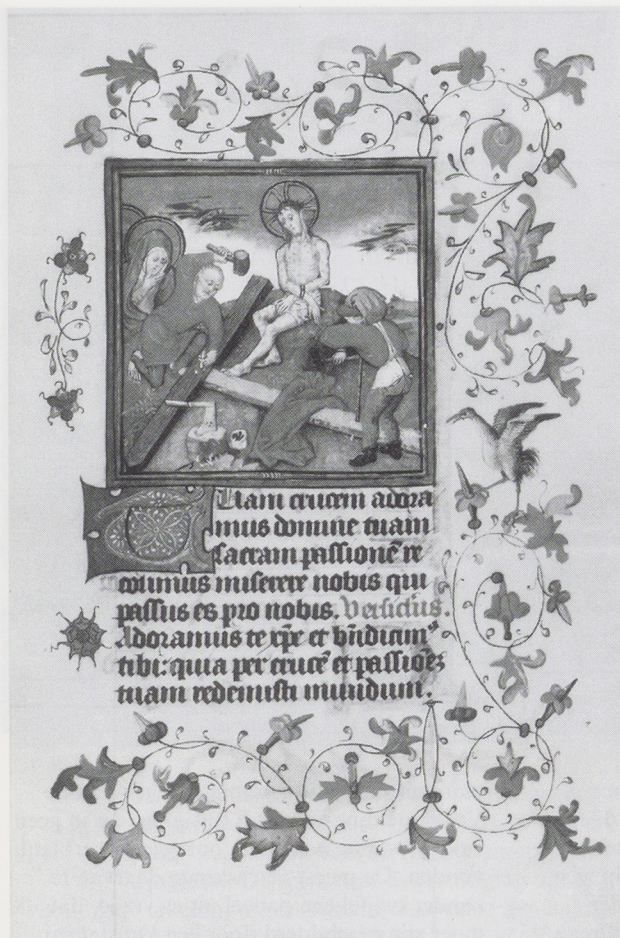 Tuam crucem adora
mus domine tuam
sacram passionē re
colimus miserere nobis qui
passus es pro nobis. Versiclus.
Adoramus te xp̄e et bn̄dicim⁹
tibi: quia per crucē et passionē
tuam redemisti mundum.